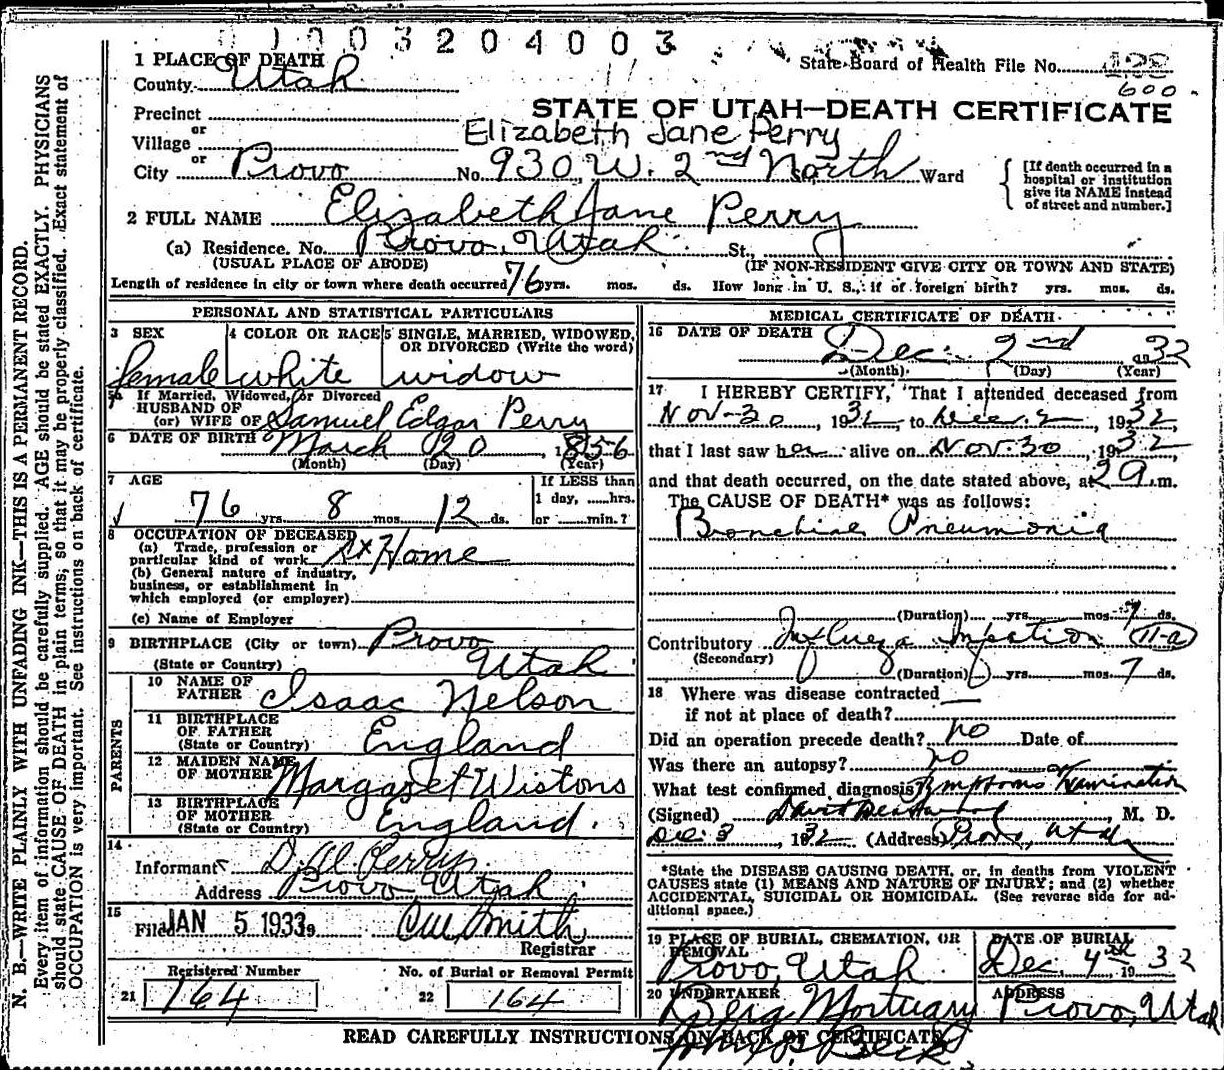 1003204003
1 PLACE OF DEATH
State Board of Health File No. 
600
County Utah
STATE OF UTAH—DEATH CERTIFICATE
Precinct
or
Village
Elizabeth Jane Perry
or
City Provo No. 930 W. 2nd North Ward
[If death occurred in a hospital or institution give its NAME instead of street and number.]
2 FULL NAME Elizabeth Jane Perry
(a) Residence. No. Provo, Utah St.
(USUAL PLACE OF ABODE) (IF NON-RESIDENT GIVE CITY OR TOWN AND STATE)
Length of residence in city or town where death occurred 76 yrs. mos. ds. How long in U. S., if of foreign birth? yrs. mos. ds.
PERSONAL AND STATISTICAL PARTICULARS
3 SEX 4 COLOR OR RACE 5 SINGLE, MARRIED, WIDOWED,
OR DIVORCED (Write the word)
female white widow
5a If Married, Widowed, or Divorced
HUSBAND OF
(or) WIFE OF Samuel Edgar Perry
6 DATE OF BIRTH March 20, 1856
(Month) (Day) (Year)
7 AGE If LESS than
1 day, ......hrs.
76 yrs. 8 mos. 12 ds. or ......min.?
8 OCCUPATION OF DECEASED
(a) Trade, profession or
particular kind of work At Home
(b) General nature of industry,
business, or establishment in
which employed (or employer)
(c) Name of Employer
9 BIRTHPLACE (City or town) Provo
(State or Country) Utah
PARENTS
10 NAME OF
FATHER Isaac Nelson
11 BIRTHPLACE
OF FATHER
(State or Country) England
12 MAIDEN NAME
OF MOTHER Margaret Wistons
13 BIRTHPLACE
OF MOTHER
(State or Country) England.
14
Informant Perry
Address Provo Utah
15
Filed JAN 5 1933 Smith
Registrar
Registered Number No. of Burial or Removal Permit
21 164 22 164
MEDICAL CERTIFICATE OF DEATH
16 DATE OF DEATH
Dec. 2nd 1932
(Month) (Day) (Year)
17 I HEREBY CERTIFY, That I attended deceased from
Nov-30, 1932, to Dec. 2, 1932,
that I last saw her alive on Nov. 30, 1932
and that death occurred, on the date stated above, at 2 a.m.
The CAUSE OF DEATH* was as follows:
Bronchial Pneumonia
(Duration) yrs. mos. 7 ds.
Contributory Influenza Infection 11-a
(Secondary)
(Duration) yrs. mos. 7 ds.
18 Where was disease contracted
if not at place of death?
Did an operation precede death? no Date of
Was there an autopsy? no
What test confirmed diagnosis? Symptoms Examination
(Signed) M. D.
Dec. 3, 1932 (Address) Provo, Utah
*State the DISEASE CAUSING DEATH, or, in deaths from VIOLENT
CAUSES state (1) MEANS AND NATURE OF INJURY; and (2) whether
ACCIDENTAL, SUICIDAL OR HOMICIDAL. (See reverse side for ad-
ditional space.)
19 PLACE OF BURIAL, CREMATION, OR
REMOVAL DATE OF BURIAL
Provo, Utah Dec. 4th 1932
20 UNDERTAKER ADDRESS
Berg Mortuary Provo, Utah
READ CAREFULLY INSTRUCTIONS ON BACK OF CERTIFICATE
N. B.—WRITE PLAINLY WITH UNFADING INK—THIS IS A PERMANENT RECORD.
Every item of information should be carefully supplied. AGE should be stated EXACTLY. PHYSICIANS
should state CAUSE OF DEATH in plain terms, so that it may be properly classified. Exact statement of
OCCUPATION is very important. See instructions on back of certificate.